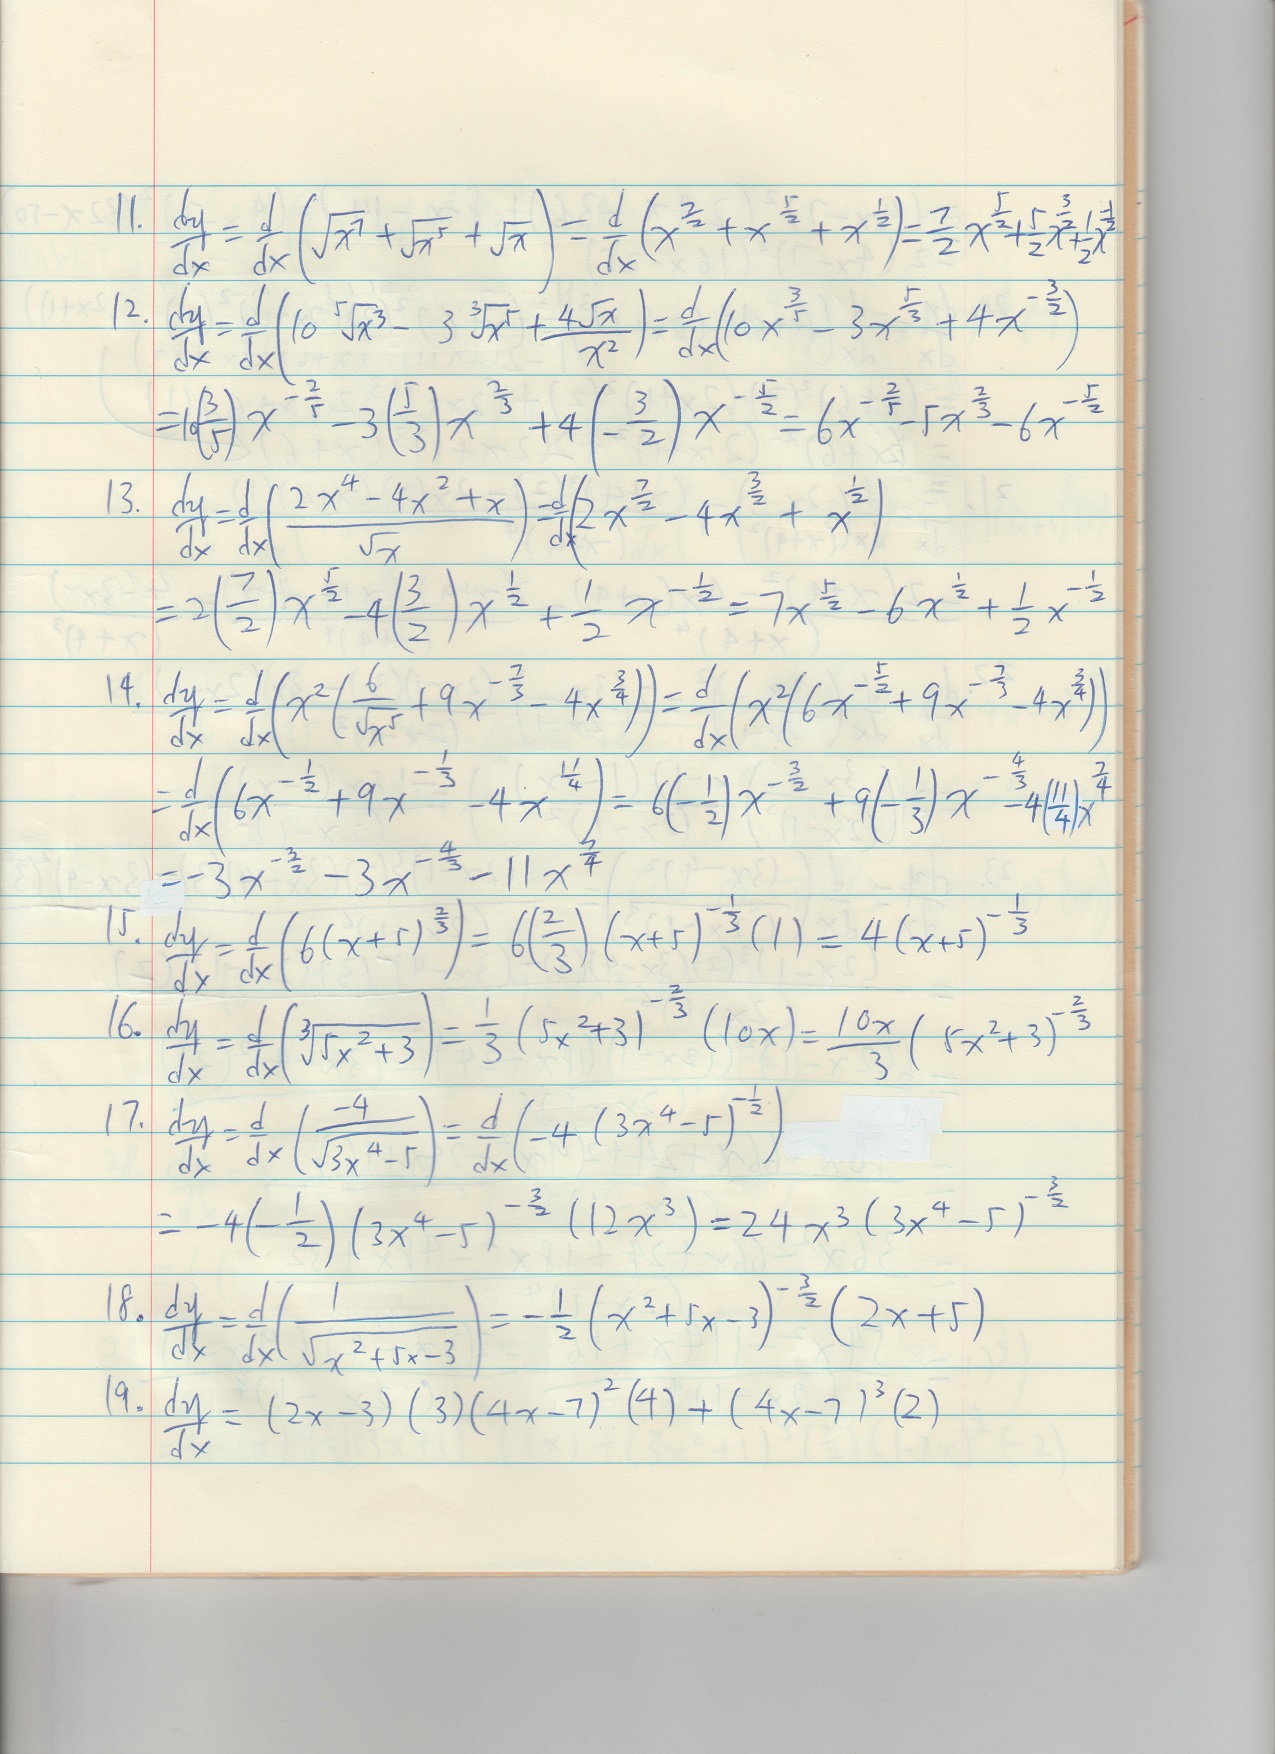 11. dy/dx = d/dx (√x⁷ + √x⁵ + √x) = d/dx (x^(7/2) + x^(5/2) + x^(1/2)) = 7/2 x^(5/2) + 5/2 x^(3/2) + 1/2 x^(-1/2)
12. dy/dx = d/dx (10 ⁵√x³ - 3 ³√x⁵ + 4√x/x²) = d/dx (10x^(3/5) - 3x^(5/3) + 4x^(-3/2))
= 10(3/5) x^(-2/5) - 3(5/3) x^(2/3) + 4(-3/2) x^(-5/2) = 6x^(-2/5) - 5x^(2/3) - 6x^(-5/2)
13. dy/dx = d/dx ((2x⁴ - 4x² + x)/√x) = d/dx (2x^(7/2) - 4x^(3/2) + x^(1/2))
= 2(7/2) x^(5/2) - 4(3/2) x^(1/2) + 1/2 x^(-1/2) = 7x^(5/2) - 6x^(1/2) + 1/2 x^(-1/2)
14. dy/dx = d/dx (x² (6/√x⁵ + 9x^(-7/3) - 4x^(3/4))) = d/dx (x² (6x^(-5/2) + 9x^(-7/3) - 4x^(3/4)))
= d/dx (6x^(-1/2) + 9x^(-1/3) - 4x^(11/4)) = 6(-1/2) x^(-3/2) + 9(-1/3) x^(-4/3) - 4(11/4) x^(7/4)
= -3x^(-3/2) - 3x^(-4/3) - 11x^(7/4)
15. dy/dx = d/dx (6(x+5)^(2/3)) = 6(2/3) (x+5)^(-1/3) (1) = 4(x+5)^(-1/3)
16. dy/dx = d/dx (³√(5x²+3)) = 1/3 (5x²+3)^(-2/3) (10x) = 10x/3 (5x²+3)^(-2/3)
17. dy/dx = d/dx (-4/√(3x⁴-5)) = d/dx (-4 (3x⁴-5)^(-1/2))
= -4(-1/2) (3x⁴-5)^(-3/2) (12x³) = 24x³ (3x⁴-5)^(-3/2)
18. dy/dx = d/dx (1/√(x²+5x-3)) = -1/2 (x²+5x-3)^(-3/2) (2x+5)
19. dy/dx = (2x-3)(3)(4x-7)²(4) + (4x-7)³(2)